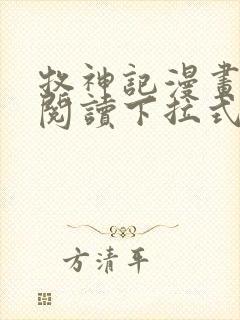 牧神記漫畫
閱讀下拉式
方清平